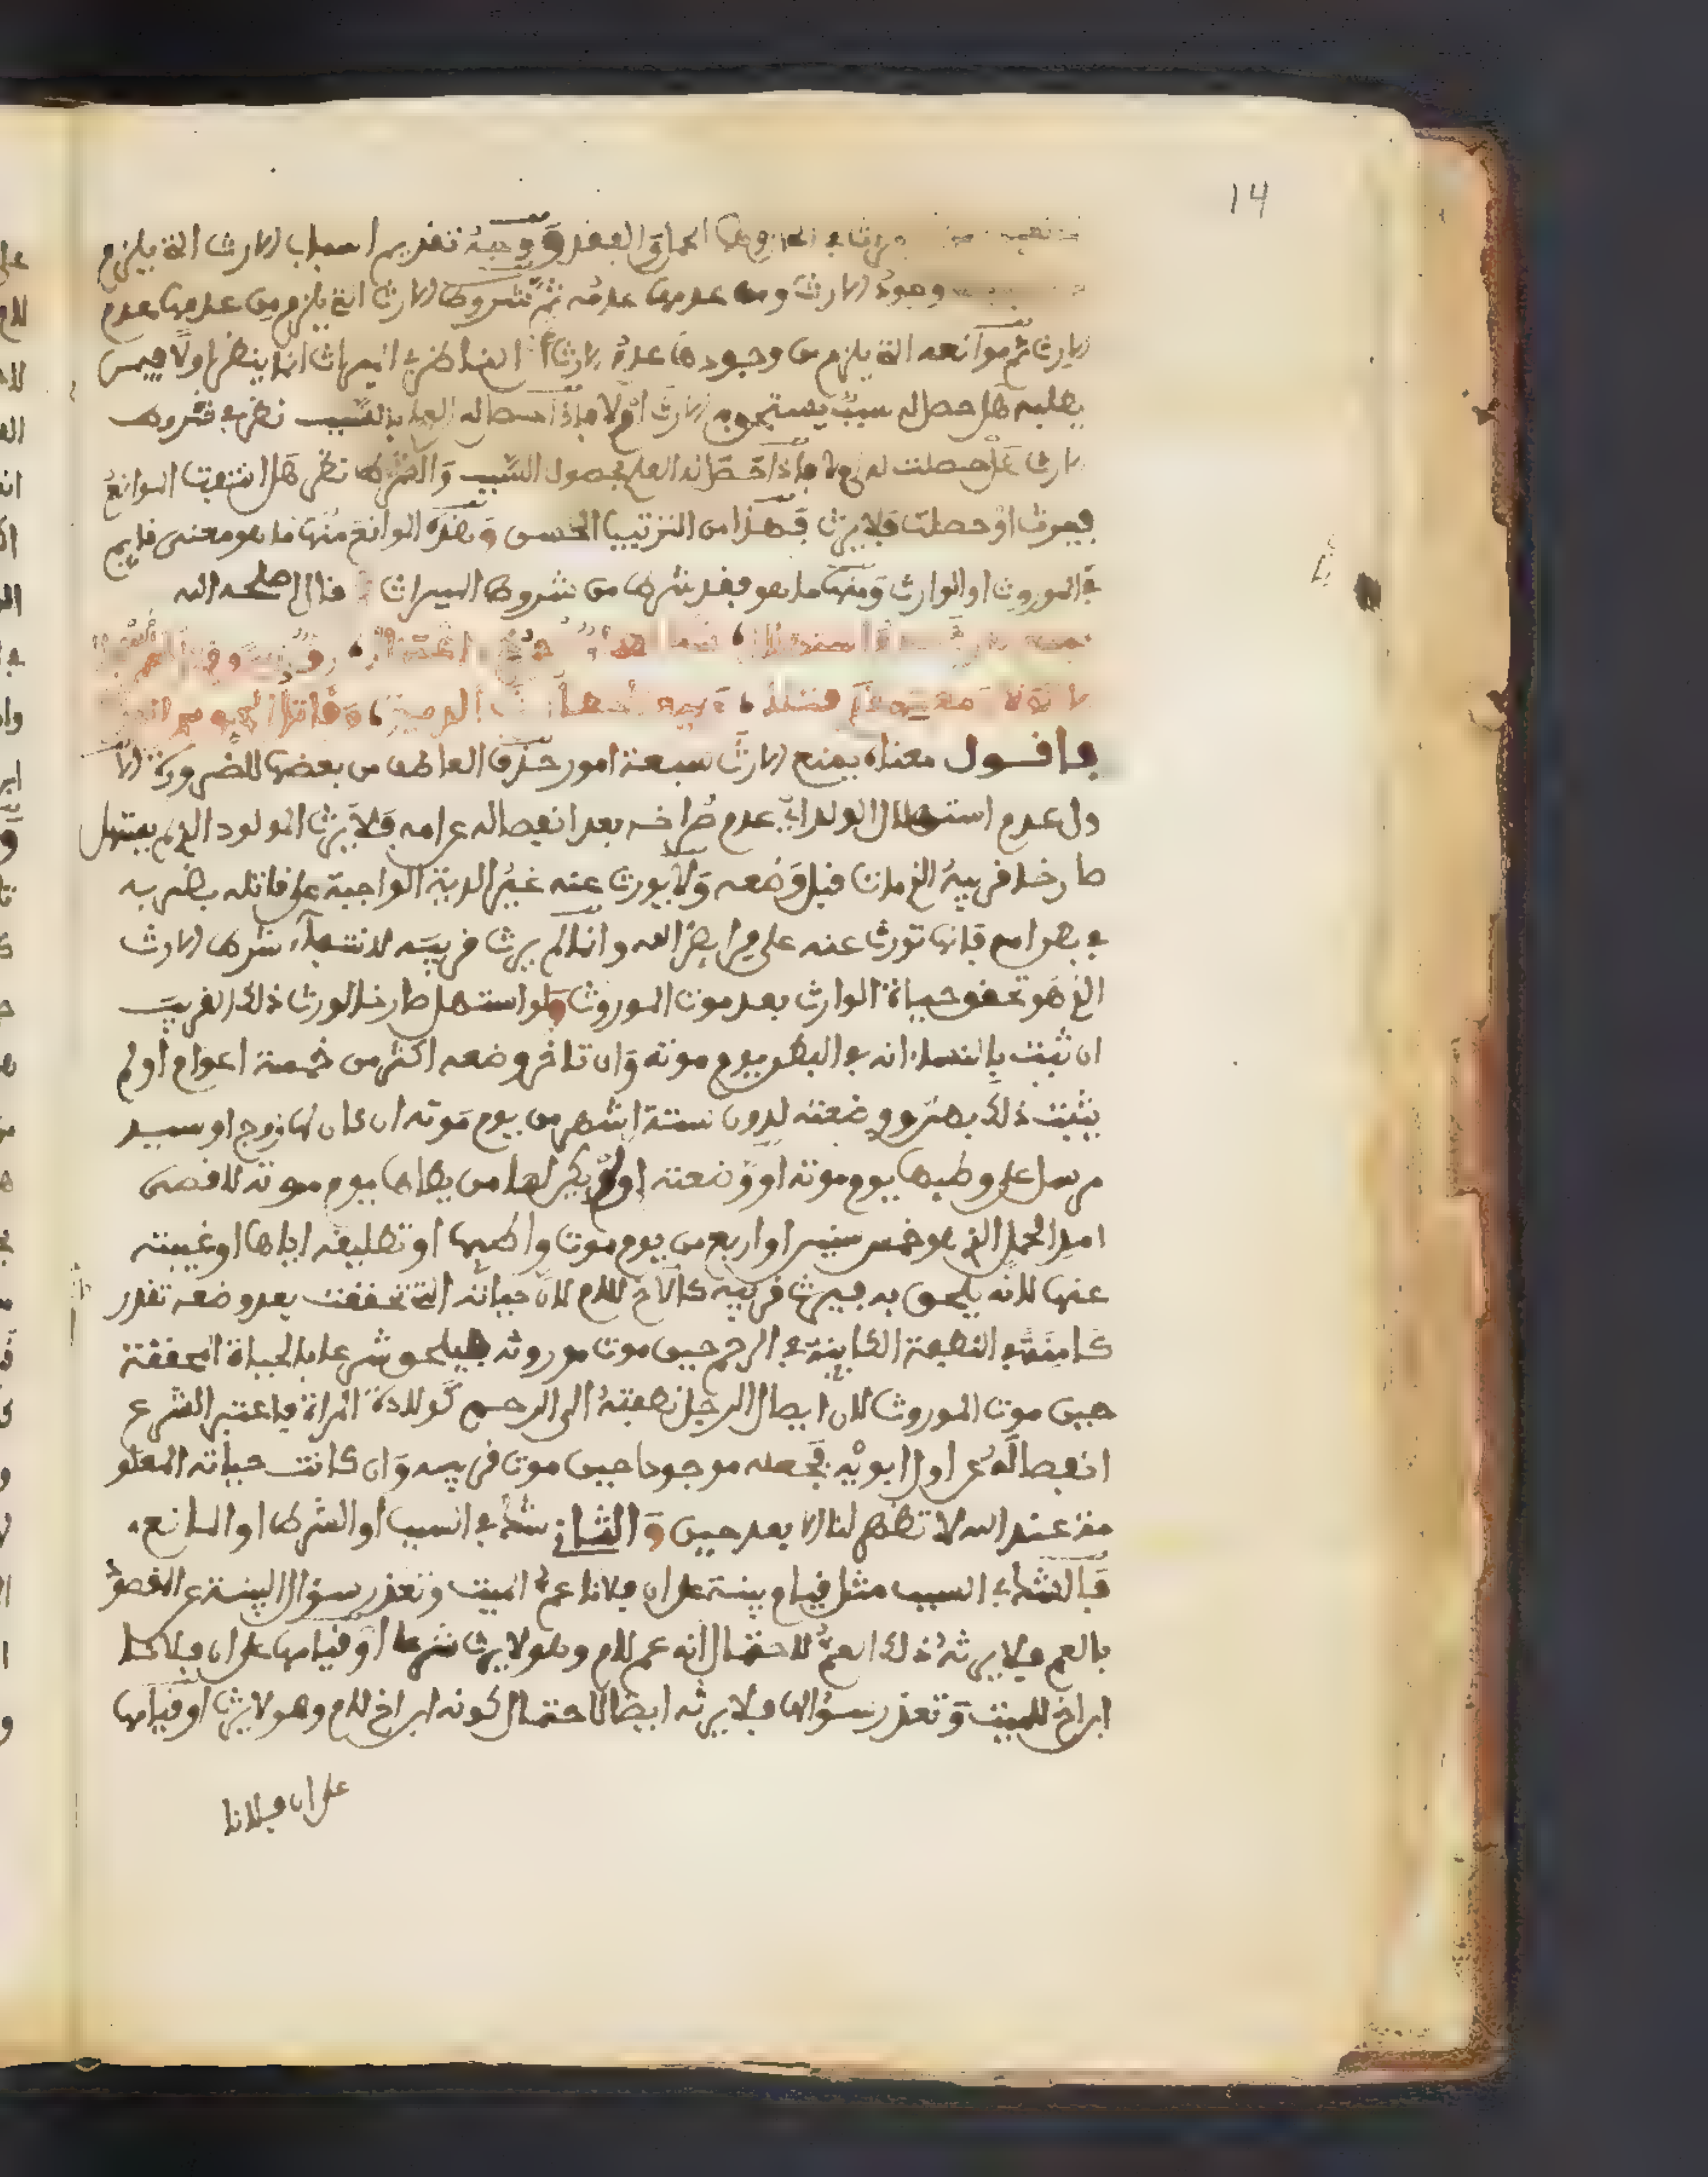 14
الحمل والفقد ووجه تقديم اسباب الارث التي يلزم
وجود الارث ومن عدمها عدمه ثم شروط الارث التي يلزم من عدمها عدم
الارث ثم موانعه التي يلزم من وجودها عدم الارث الناظر في الميراث انما ينظر اولا فيمن
يطلبه هل حصل له سبب يستحق به الارث اولا فاذا حصل له العلم بذلك السبب نظر في شروط
الارث هل حصلت له ام لا فاذا حصل له العلم بحصول السبب والشرط نظر هل انتفت الموانع
فيرث او حصلت فلا يرث فهذا من الترتيب الحسن وهذه الموانع منها ما هو معنى قايم
في الموروث او الوارث ومنها ما هو فقد شرط من شروط الميراث قال اصلحه الله
فاقول معناه يمنع الارث سبعة امور حذف العاطف من بعضها للضرورة الا
ول عدم استهلال الولد اي عدم صراخه بعد انفصاله عن امه فلا يرث المولود الذي لم يستهل
صارخا قريبه الذي مات قبل وضعه ولا يورث عنه غير الدية الواجبة على قاتله بضربه
في بطن امه فانها تورث عنه على فرايض الله وانما لم يرث قريبه لانتفاء شرط الارث
الذي هو تحقق حياة الوارث بعد موت الموروث ولو استهل صارخا لورث ذلك القريب
ان ثبت بالنساء انه في البطن يوم موته وان تاخر وضعه اكثر من خمسة اعوام او لم
يثبت ذلك بهن ووضعته لدون ستة اشهر من يوم موته ان كان لها زوج او سيد
مرسل على وطيها يوم موته او وضعته اولم يكن لها من يطاها يوم موته لاقصى
امد الحمل الذي هو خمس سنين او اربع من يوم موت واطيها او تطليقه اياها او غيبته
عنها لانه يلحق به فيرث قريبه كالاخ للام لان حياته التي تحققت بعد وضعه تقدر
كامنة في النطفة الكاينة في الرحم حين موت موروثه فيلحق شرعا بالحياة المحققة
حين موت الموروث لان ايصال الرجل نطفته الى الرحم كولادة المراة فاعتبر الشرع
انفصاله عن اول ابويه فجعله موجودا حين موت قريبه وان كانت حياته المعلو
مة عند الله لا تظهر لنا الا بعد حين والثاني شك في السبب او الشرط او المانع
فالشك في السبب مثل قيام بينة على ان فلانا عم الميت وتعذر سؤال البينة عن المقصود
بالعم فلا يرثه ذلك العم لاحتمال انه عم للام وهو لا يرث شرعا او قيامها على ان فلانا
ابن اخ للميت وتعذر سؤالها فلا يرثه ايضا لاحتمال كونه ابن اخ للام وهو لا يرث او قيامها
على ان فلانا